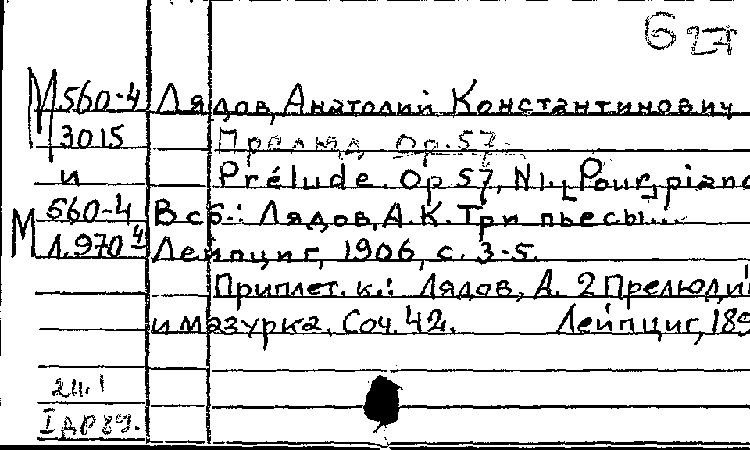 G 27
М 560-4 Лядов, Анатолий Константинович
3015 Прелюд. Op.57.
и Prélude. Op 57, N1. [Pour] piano
М 560-4 В сб.: Лядов, А.К. Три пьесы...
Л.970 4 Лейпциг, 1906, с. 3-5.
Приплет. к.: Лядов, А. 2 Прелюдии
и мазурка. Соч. 42. Лейпциг, 189
2н.1
I др 89.